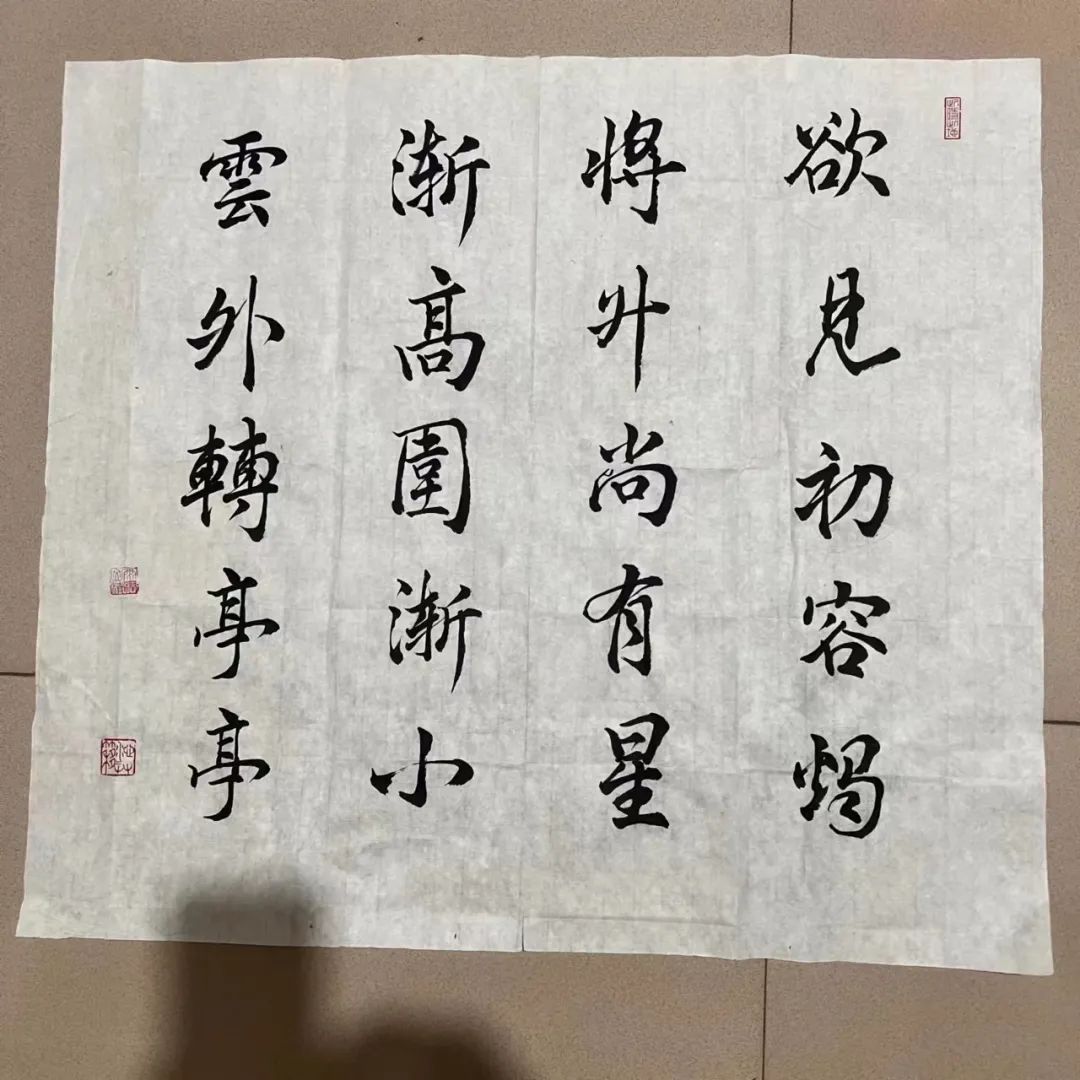 欲見初容燭
將升尚有星
漸高圍漸小
雲外轉亭亭